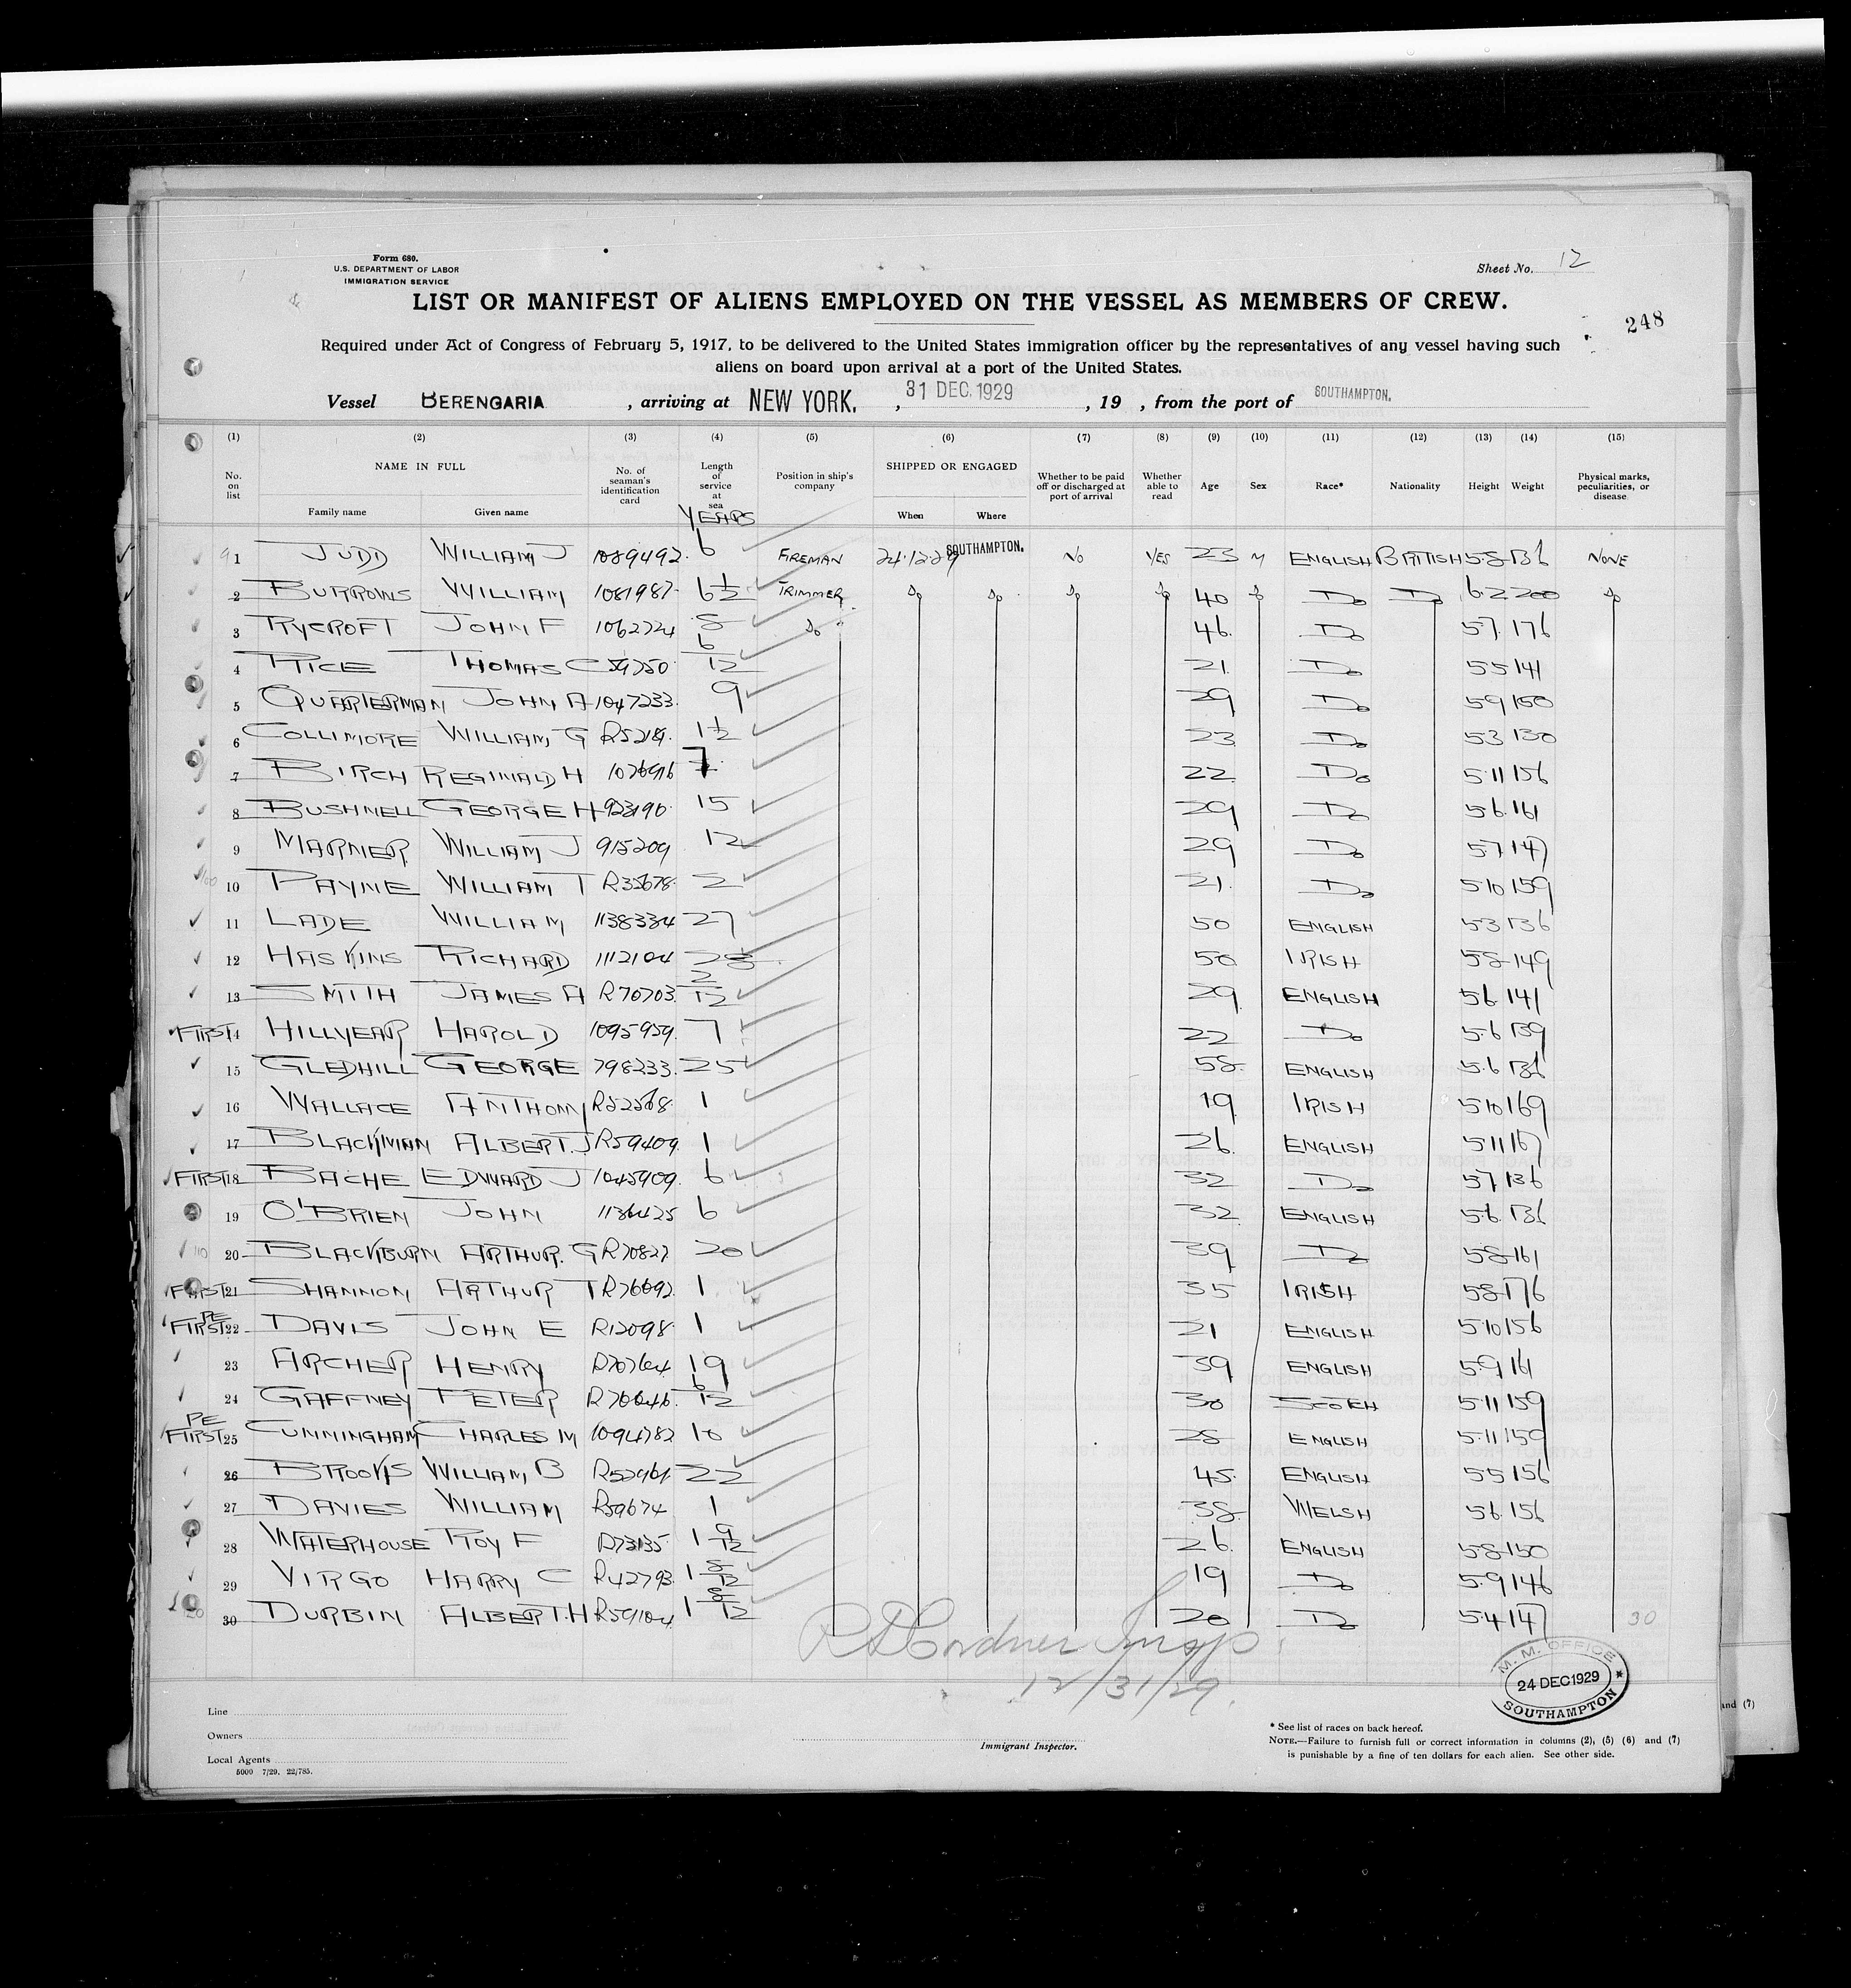 Form 680.
U.S. DEPARTMENT OF LABOR
IMMIGRATION SERVICE
Sheet No. 12
LIST OR MANIFEST OF ALIENS EMPLOYED ON THE VESSEL AS MEMBERS OF CREW.
248
Required under Act of Congress of February 5, 1917, to be delivered to the United States immigration officer by the representatives of any vessel having such
aliens on board upon arrival at a port of the United States.
Vessel BERENGARIA, arriving at NEW YORK, 31 DEC. 1929, 19 , from the port of SOUTHAMPTON.
(1) (2) (3) (4) (5) (6) (7) (8) (9) (10) (11) (12) (13) (14) (15)
No. on list NAME IN FULL Family name Given name No. of seaman's identification card Length of service at sea YEARS Position in ship's company SHIPPED OR ENGAGED When Where Whether to be paid off or discharged at port of arrival Whether able to read Age Sex Race* Nationality Height Weight Physical marks, peculiarities, or disease
1 JUDD WILLIAM J 1089492 6 FIREMAN 24.12.29 SOUTHAMPTON. NO YES 23 M ENGLISH BRITISH 5.8 136 NONE
2 BURROWS WILLIAM 1081987 6 1/2 TRIMMER Do Do Do Do 40 Do Do Do 6.2 200 Do
3 RYCROFT JOHN F 1062724 8 Do 46 Do 5.7 176
4 RICE THOMAS C 6/12 21 Do 5.5 141
5 QUARTERMAN JOHN A 1047233 9 29 Do 5.9 150
6 COLLIMORE WILLIAM G R5219 1 1/2 23 Do 5.3 130
7 BIRCH REGINALD H 7 22 Do 5.11 156
8 BUSHNELL GEORGE H 15 29 Do 5.6 161
9 MARNER WILLIAM J 915209 12 29 Do 5.7 147
10 PAYNE WILLIAM T R35678 2 21 Do 5.10 159
11 LADE WILLIAM 1138334 27 50 ENGLISH 5.3 136
12 HASKINS RICHARD 1112104 28 50 IRISH 5.8 149
13 SMITH JAMES A R70703 2/12 29 ENGLISH 5.6 141
FIRST 14 HILLYEAR HAROLD 1095959 7 22 Do 5.6 139
15 GLEDHILL GEORGE 798233 25 58 ENGLISH 5.6 136
16 WALLACE ANTHONY R52568 1 19 IRISH 5.10 169
17 BLACKMAN ALBERT. J R59409 1 26 ENGLISH 5.11 167
FIRST 18 BACHE EDWARD J 1045909 6 32 Do 5.7 136
19 O'BRIEN JOHN 1136425 6 32 ENGLISH 5.6 136
20 BLACKBURN ARTHUR. G R70827 20 39 Do 5.8 161
FIRST 21 SHANNON ARTHUR T 1 35 IRISH 5.8 176
PE FIRST 22 DAVIS JOHN E R12098 1 21 ENGLISH 5.10 156
23 ARCHER HENRY R70764 19 39 ENGLISH 5.9 161
24 GAFFNEY PETER R70646 6/12 30 SCOTCH 5.11 159
PE FIRST 25 CUNNINGHAM CHARLES M 1094782 10 28 ENGLISH 5.11 159
26 BROOKS WILLIAM B 22 45 ENGLISH 5.5 156
27 DAVIES WILLIAM R59674 1 38 WELSH 5.6 156
28 WATERHOUSE ROY F R73135 1 9/12 26 ENGLISH 5.8 150
29 VIRGO HARRY C R42793 1 8/12 19 Do 5.9 146
30 DURBIN ALBERT. H R59104 1 8/12 20 Do 5.4 147
30
Gardner Insp.
12/31/29.
M. M. OFFICE
24 DEC 1929
SOUTHAMPTON
Line
Owners
Local Agents
5000 7/29. 22/785.
Immigrant Inspector.
* See list of races on back hereof.
NOTE.—Failure to furnish full or correct information in columns (2), (5) (6) and (7)
is punishable by a fine of ten dollars for each alien. See other side.
and (7)